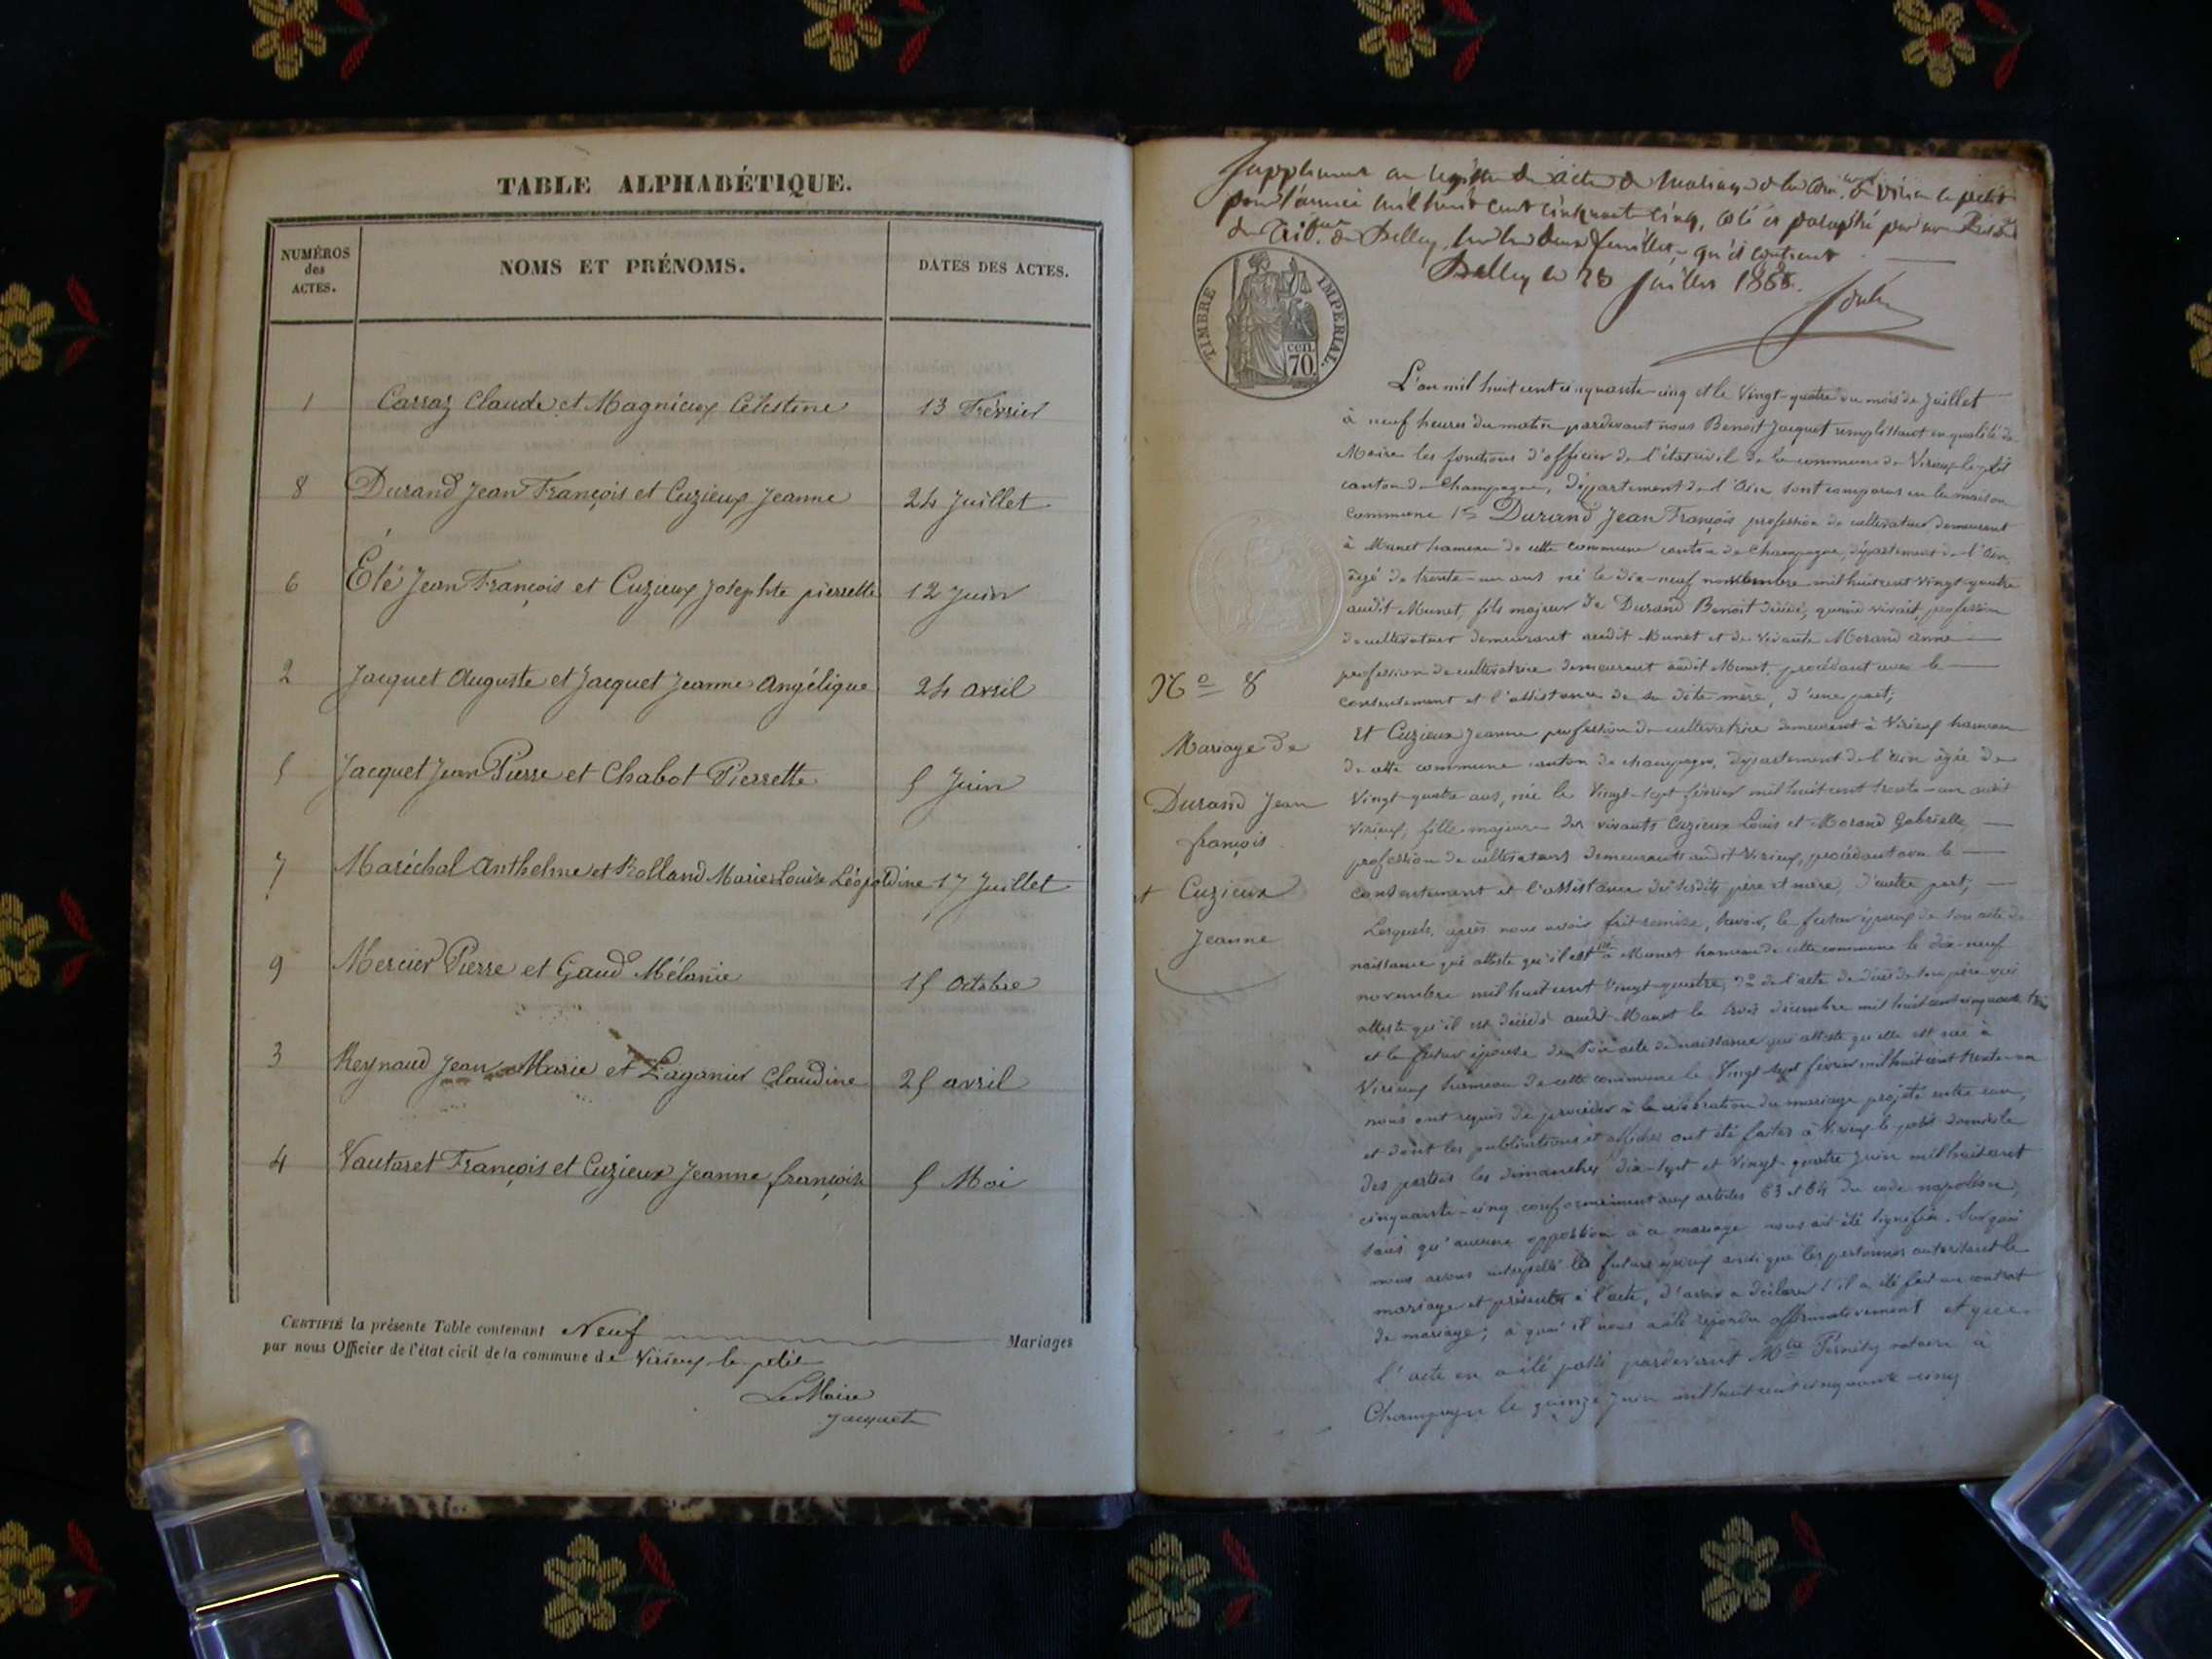 TABLE ALPHABÉTIQUE.
NUMÉROS des ACTES. NOMS ET PRÉNOMS. DATES DES ACTES.
1 Carraz Claude et Magnieux Célestine 13 Février
8 Durand Jean François et Cuzieux Jeanne 24 Juillet
6 Été Jean François et Cuzieux Josephte pierrette 12 Juin
2 Jacquet Auguste et Jacquet Jeanne Angélique 24 avril
5 Jacquet Jean Pierre et Chabot Pierrette 5 Juin
7 Maréchal Anthelme et Rolland Marie Louise Léopoldine 17 Juillet
9 Mercier Pierre et Gaud Mélanie 15 Octobre
3 Reynaud Jean Marie et Laganier Claudine 25 avril
4 Vautaret François et Cuzieux Jeanne françoise 5 Mai
CERTIFIÉ la présente Table contenant Neuf Mariages
par nous Officier de l'état civil de la commune de Virieux le petit
Le Maire
Jacquet
Supplément au registre des actes de mariage de la de Virieu le petit
pour l'année mil huit cent cinquante cinq, coté et paraphé par nous
du de Belley, sur les deux feuilles qu'il contient
Belley le 23 Juillet
TIMBRE IMPERIAL.
cen. 70.
L'an mil huit cent cinquante-cinq et le Vingt-quatre du mois de Juillet
à neuf heures du matin pardevant nous Benoit Jacquet remplissant en qualité de
Maire les fonctions d'officier de l'état civil de la commune de Virieux le petit
canton de Champagne, département de l'Ain, sont comparus en la maison
commune Durand Jean François profession de cultivateur demeurant
à Munet hameau de cette commune canton de Champagne, département de l'Ain,
âgé de trente-un ans né le dix-neuf novembre mil huit cent vingt-quatre
audit Munet, fils majeur de Durand Benoit décédé, quand vivait, profession
de cultivateur demeurant audit Munet et de vivante Morand anne
profession de cultivatrice demeurant audit Munet, procédant avec le
consentement et l'assistance de sa dite mère, d'une part;
Et Cuzieux Jeanne profession de cultivatrice demeurant à Virieux hameau
de cette commune canton de champagne, département de l'ain âgée de
Vingt-quatre ans, née le Vingt-sept février mil huit cent trente-un audit
Virieux, fille majeure des vivants Cuzieux Louis et Morand Gabrielle,
profession de cultivateurs demeurants audit Virieux, procédant avec le
consentement et l'assistance de sesdits père et mère, d'autre part;
Lesquels, après nous avoir fait remise, savoir, le futur époux de son acte de
naissance qui atteste qu'il est né à Munet hameau de cette commune le dix-neuf
novembre mil huit cent vingt-quatre, 2° de l'acte de décès de son père qui
atteste qu'il est décédé audit Munet le trois décembre mil huit cent cinquante trois
et la future épouse de son acte de naissance qui atteste qu'elle est née à
Virieux hameau de cette commune le Vingt-sept février mil huit cent trente-un
nous ont requis de procéder à la célébration du mariage projeté entre eux,
et dont les publications et affiches ont été faites à Virieux le petit domicile
des parties les dimanches dix-sept et vingt-quatre Juin mil huit cent
cinquante-cinq conformément aux articles 63 et 64 du code napoléon,
sans qu'aucune opposition à ce mariage nous ait été signifiée. Sur quoi
nous avons interpellé les futurs époux ainsi que les personnes autorisant le
mariage et présentes à l'acte, d'avoir à déclarer s'il a été fait un contrat
de mariage; à quoi il nous a été répondu affirmativement et que
l'acte en a été passé pardevant Mtre notaire à
Champagne le quinze Juin mil huit cent cinquante cinq
N° 8
Mariage de
Durand Jean
françois
et Cuzieux
Jeanne